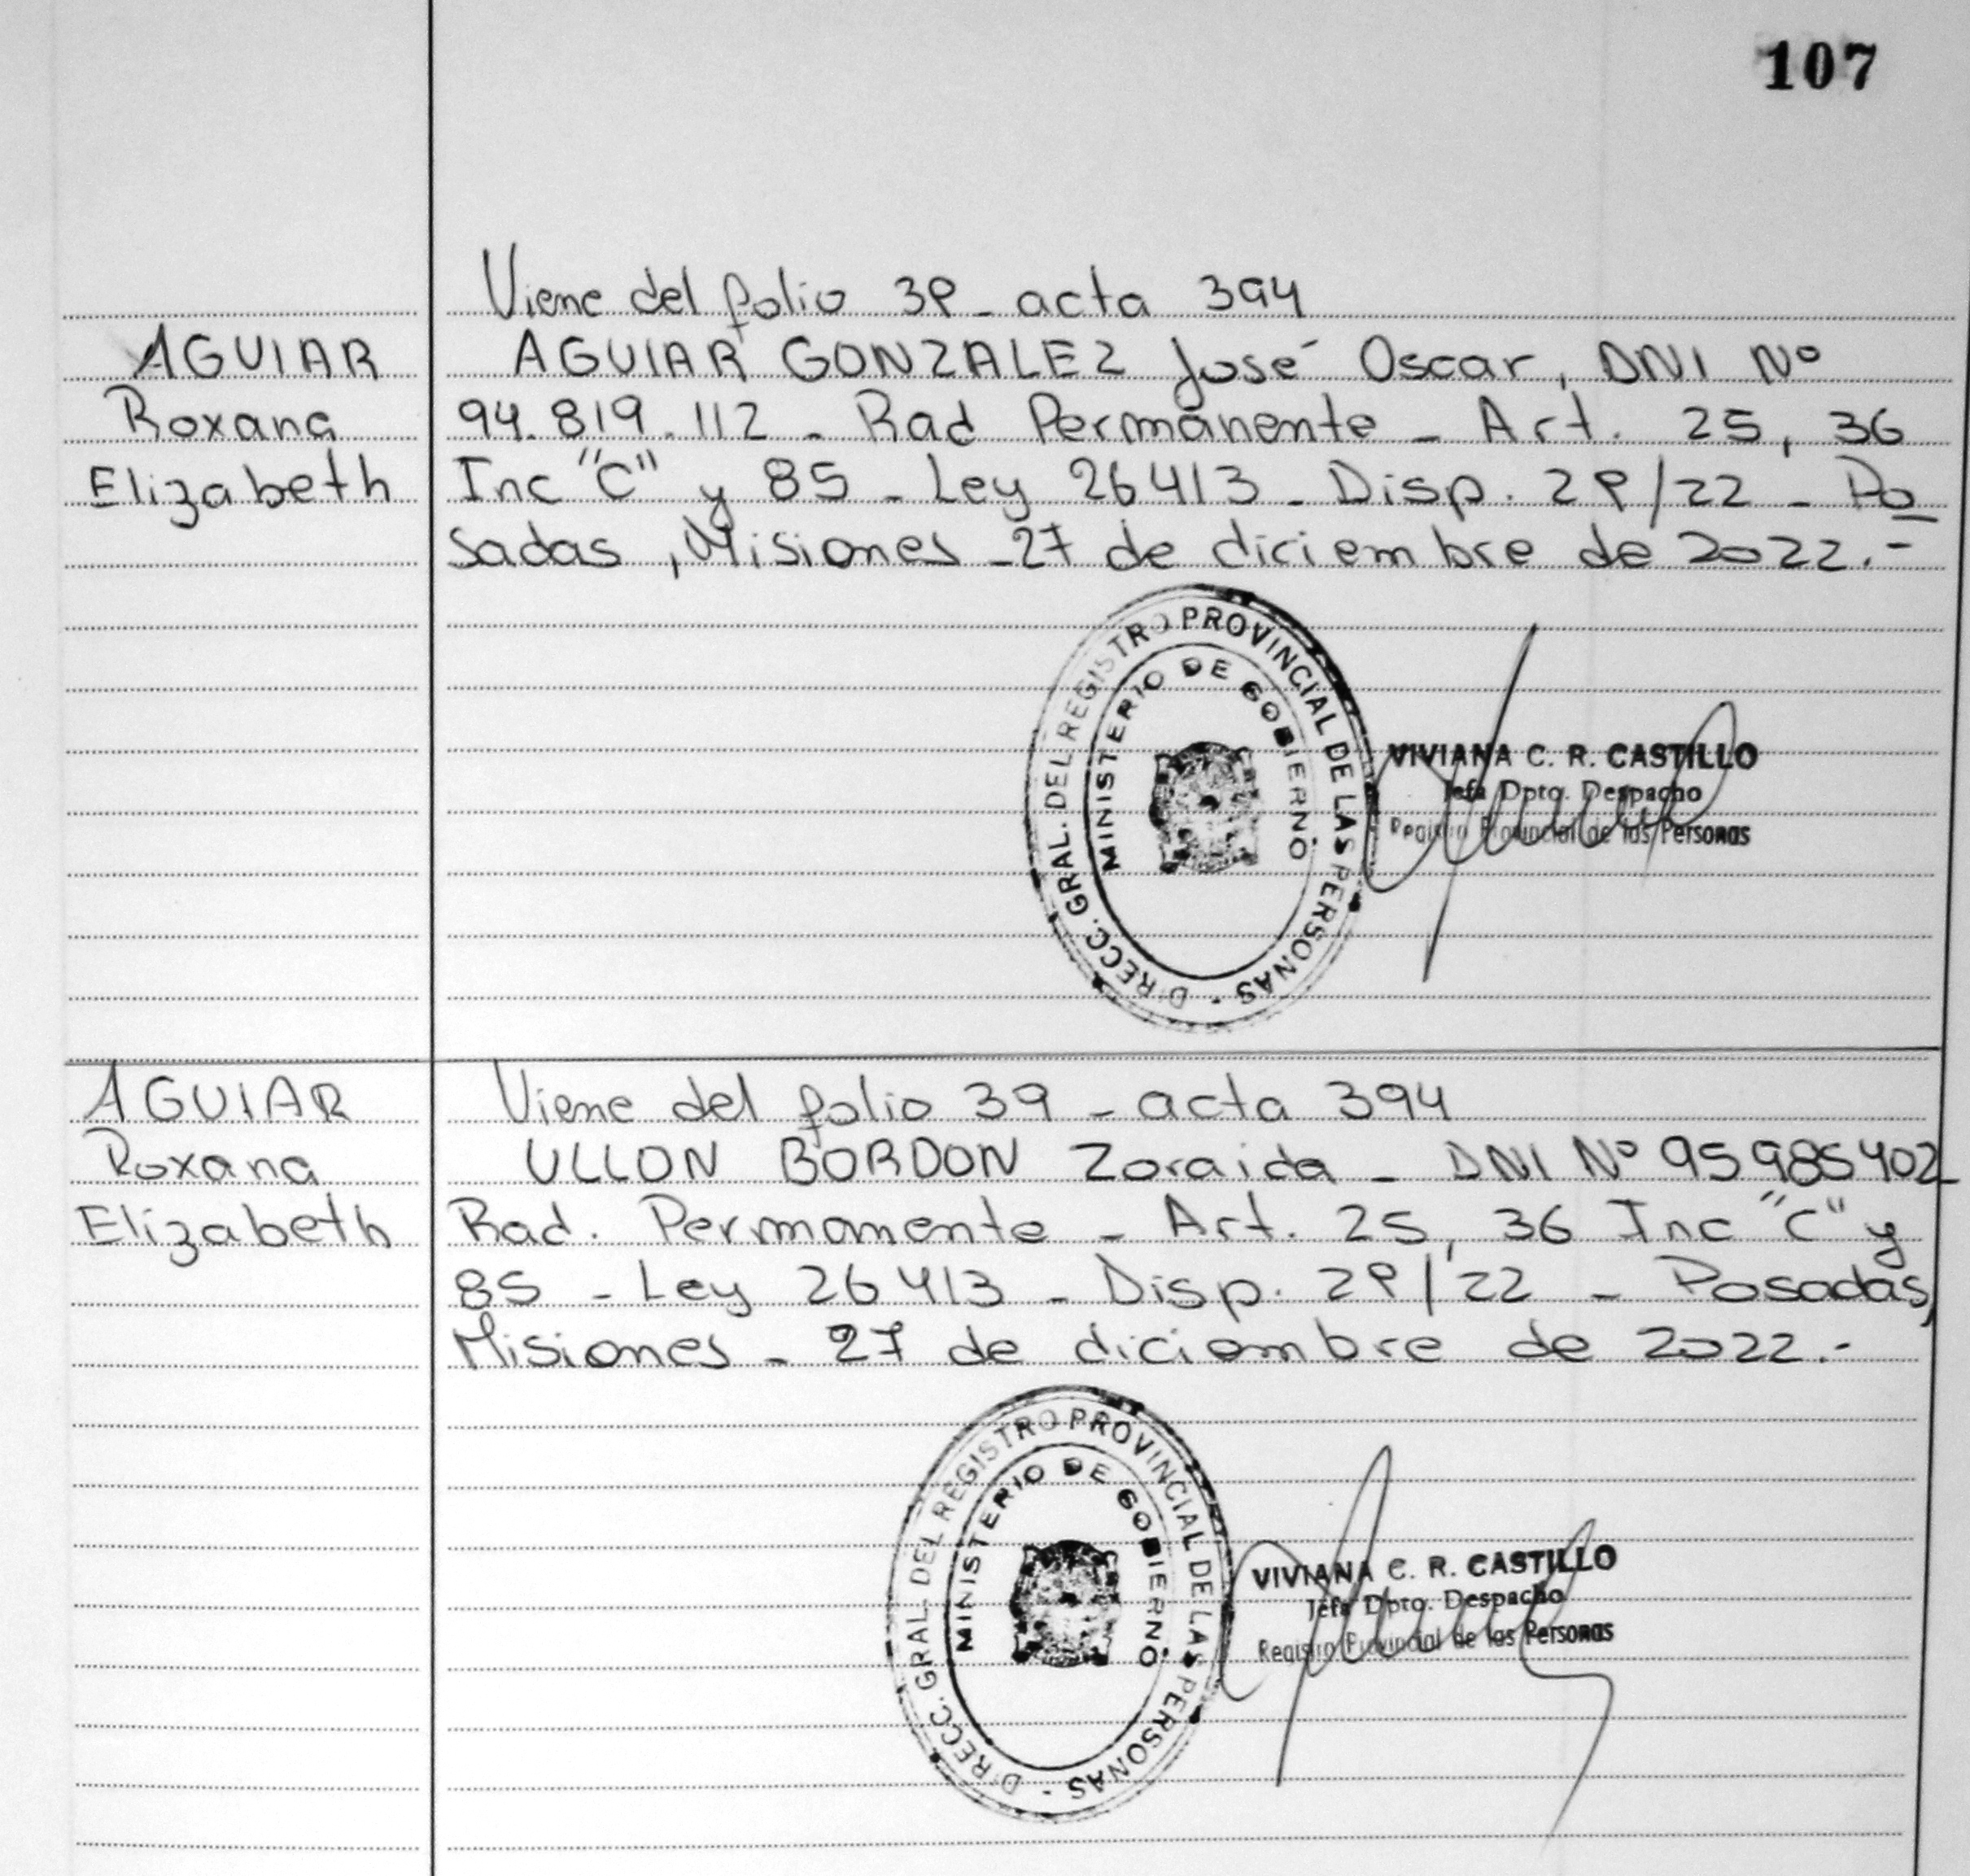 107
Viene del folio 39 - acta 394
AGUIAR
Roxana
Elizabeth
AGUIAR GONZALEZ José Oscar, DNI Nº
94.819.112 - Rad Permanente - Art. 25, 36
Inc "C" y 85 - Ley 26413 - Disp. 29/22 - Po
sadas, Misiones - 27 de diciembre de 2022.-
DIRECC. GRAL. DEL REGISTRO PROVINCIAL DE LAS PERSONAS
MINISTERIO DE GOBIERNO
VIVIANA C. R. CASTILLO
Jefa Dpto. Despacho
Registro Provincial de las Personas
AGUIAR
Roxana
Elizabeth
Viene del folio 39 - acta 394
ULLON BORDON Zoraida - DNI Nº 95985402-
Rad. Permanente - Art. 25, 36 Inc "C" y
85 - Ley 26413 - Disp. 29/22 - Posadas,
Misiones - 27 de diciembre de 2022.-
DIRECC. GRAL. DEL REGISTRO PROVINCIAL DE LAS PERSONAS
MINISTERIO DE GOBIERNO
VIVIANA C. R. CASTILLO
Jefa Dpto. Despacho
Registro Provincial de las Personas